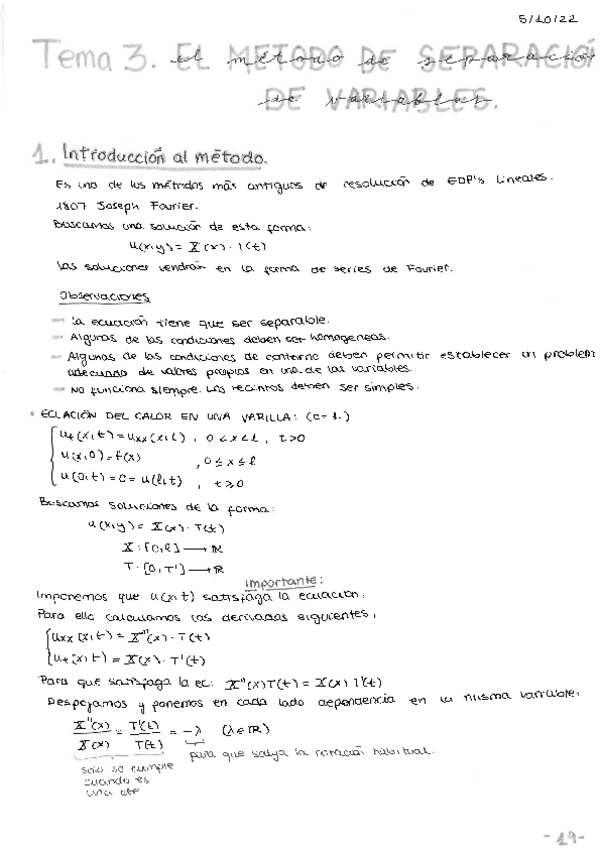 5/10/22
Tema 3. EL MÉTODO DE SEPARACIÓN
DE VARIABLES.
1. Introducción al método.
Es uno de los métodos más antiguos de resolución de EDP's lineales.
1807 Joseph Fourier.
Buscamos una solución de esta forma:
u(x,y) = X(x) · T(t)
Las soluciones vendrán en la forma de series de Fourier.
Observaciones
— La ecuación tiene que ser separable.
— Algunas de las condiciones deben ser homogéneas.
— Algunas de las condiciones de contorno deben permitir establecer un problem
adecuado de valores propios en una de las variables.
— No funciona siempre. Los recintos deben ser simples.
• ECUACIÓN DEL CALOR EN UNA VARILLA: (c=1.)
ut(x,t) = uxx(x,t), 0<x<l, t>0
u(x,0) = f(x), 0≤x≤l
u(0,t) = 0 = u(l,t), t≥0
Buscamos soluciones de la forma:
u(x,y) = X(x) · T(t)
X: [0,l] → ℝ
T: [0,T'] → ℝ
Importante:
Imponemos que u(x,t) satisfaga la ecuación.
Para ello calculamos las derivadas siguientes,
uxx(x,t) = X''(x) · T(t)
ut(x,t) = X(x) · T'(t)
Para que satisfaga la ec: X''(x)T(t) = X(x) T'(t)
Despejamos y ponemos en cada lado dependencia en la misma variable:
X''(x)/X(x) = T'(t)/T(t) = -λ (λ∈ℝ)
para que salga la notación habitual.
solo se cumple
cuando es
una cte
-19-